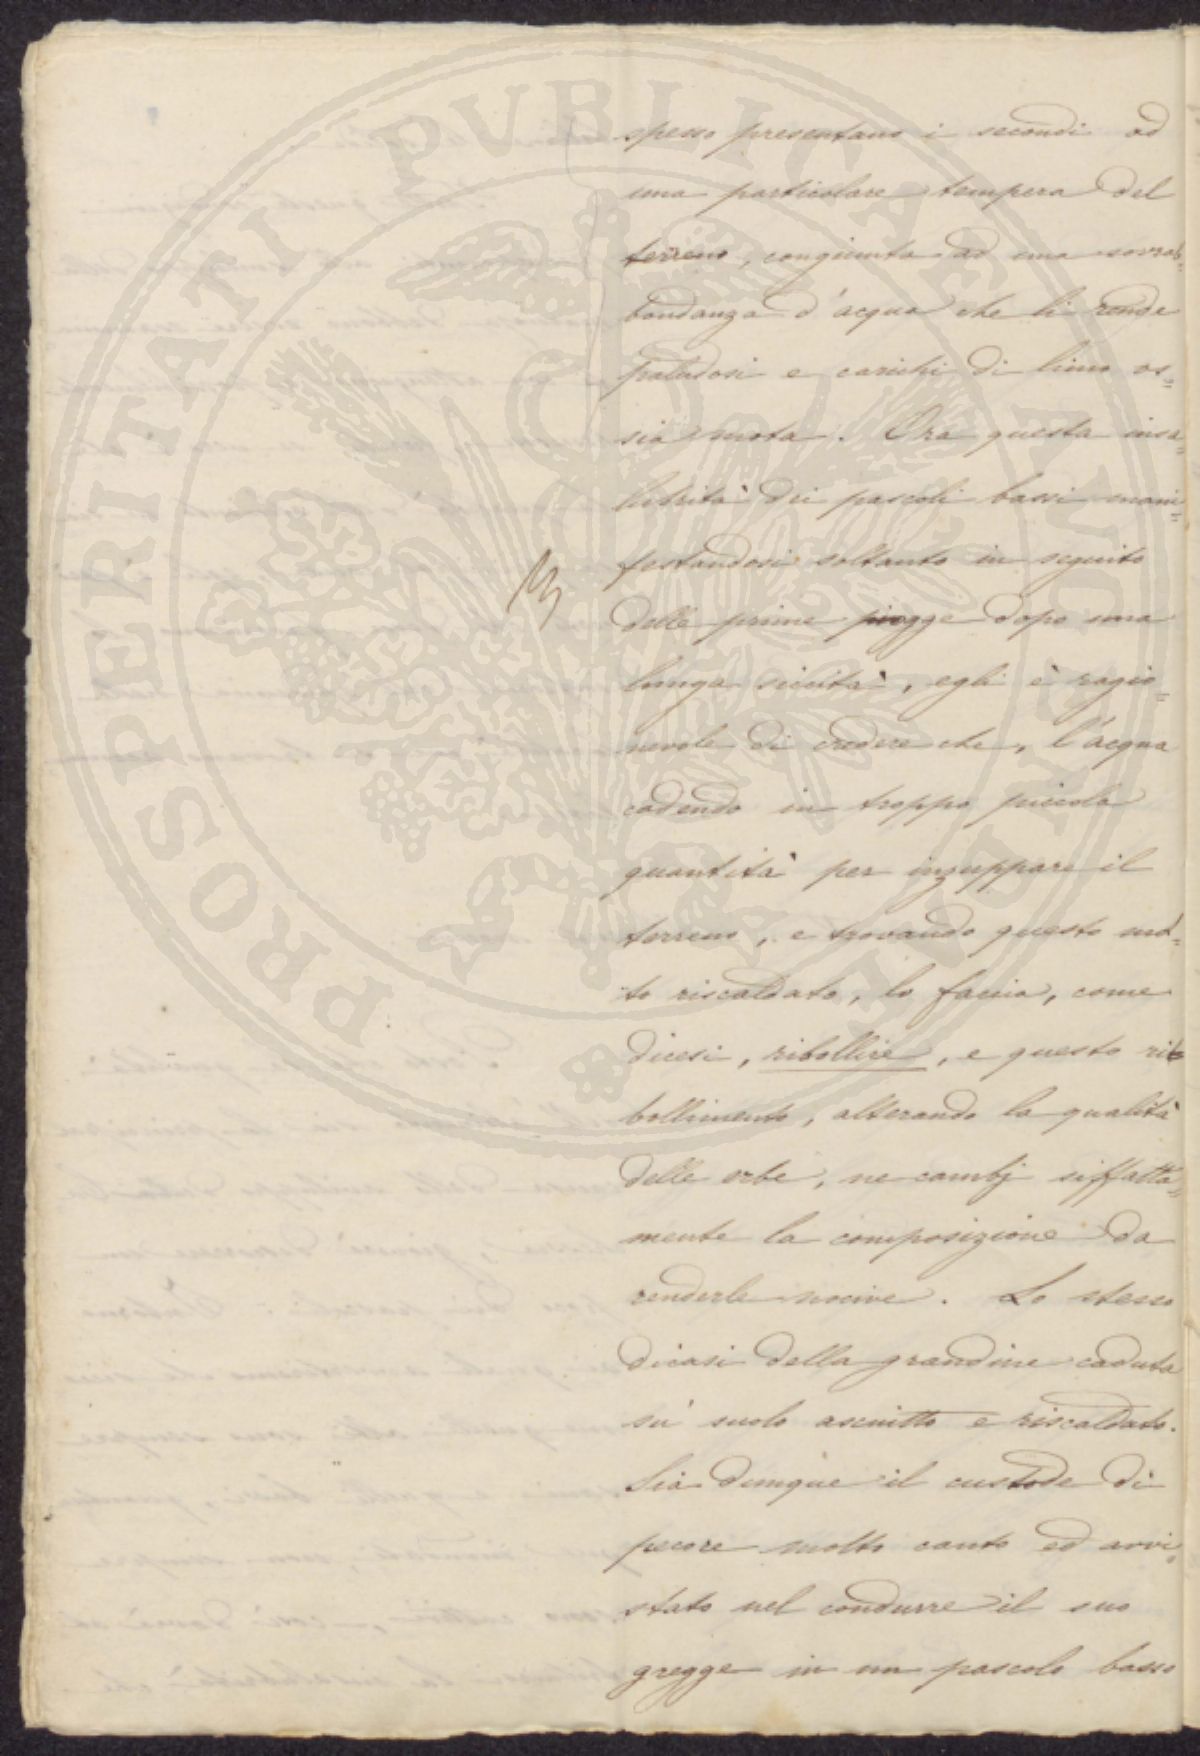 PROSPERITATI PUBLICAE AUGENDAE
spesso presentano i secondi ad
una particolare tempera del
terreno, congiunta ad una sovrab=
bondanza d'acqua che li rende
paludosi e carichi di limo os=
sia mota. Ora questa insa=
lubrità dei pascoli bassi mani=
festandosi soltanto in seguito
delle prime piogge dopo una
lunga siccità, egli è ragio=
nevole di credere che, l'acqua
cadendo in troppo piccola
quantità per inzuppare il
terreno, e trovando questo mol=
to riscaldato, lo faccia, come
dicesi, ribollire, e questo ri=
bollimento, alterando la qualità
delle erbe, ne cambj siffatta=
mente la composizione da
renderle nocive. Lo stesso
dicasi della grandine caduta
su suolo asciutto e riscaldato.
Sia dunque il custode di
pecore molto cauto ed avvi=
stato nel condurre il suo
gregge in un pascolo basso